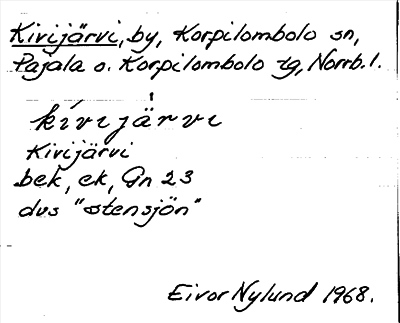 Kivijärvi, by, Korpilombolo sn,
Pajala o. Korpilombolo tg, Norrb. l.
kívijärvi
Kivijärvi
bek, ek, Gn 23
dvs "stensjön"
Eivor Nylund 1968.